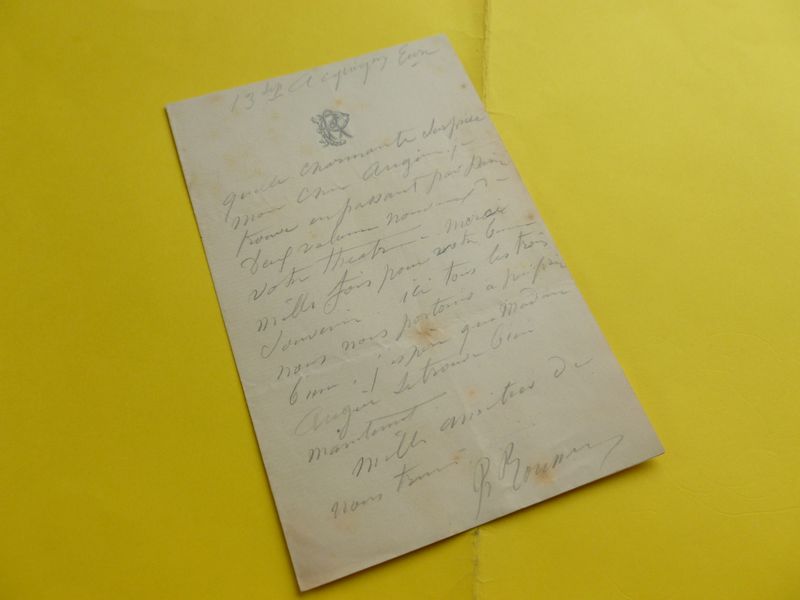 13 Sep Acquigny Eure
PR
quelle charmante surprise
mon cher Augier, je
trouve en passant par Paris
deux volumes nouveaux de
votre théâtre – merci
mille fois pour votre bon
souvenir. ici tous les trois
nous nous portons à peu près
bien, j'espère que Madame
Augier se trouve bien
maintenant.
Mille amitiés de
nous trois
P Rousseau